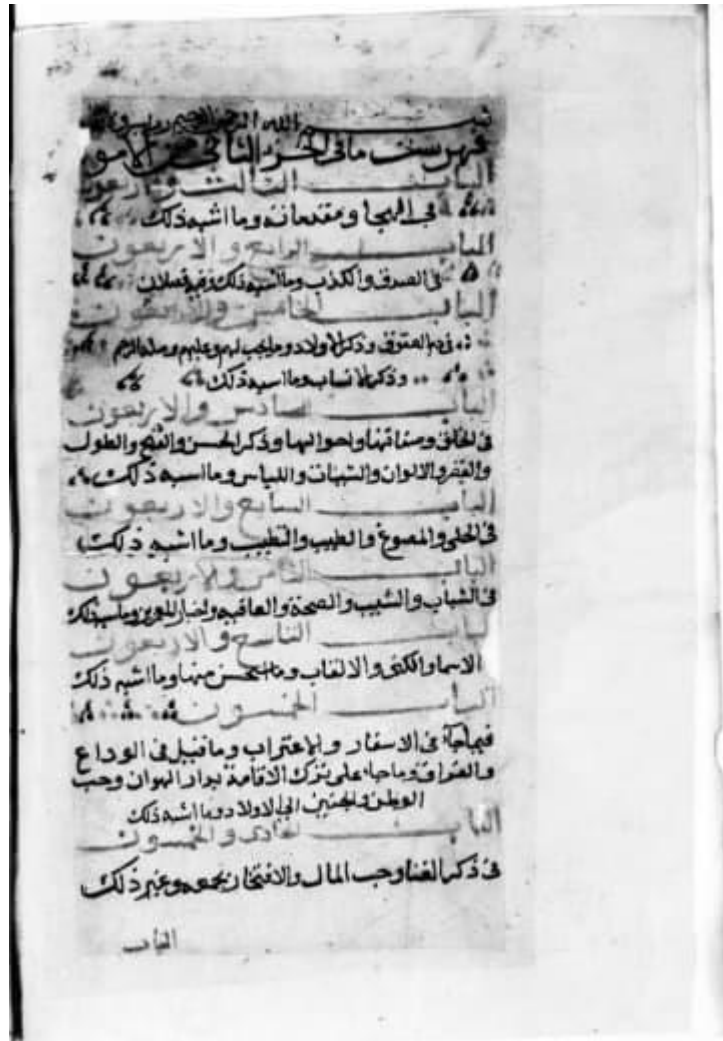 بسم الله الرحمن الرحيم
فهرست ما فى الجزء الثانى من
الباب الثالث والاربعون
فى الهجا ومقدماته وما اشبه ذلك
الباب الرابع والاربعون
فى الصدق والكذب وما اشبه ذلك وفيه فصلان
الباب الخامس والاربعون
فى العقوق وذكر الاولاد وما يجب لهم وعليهم
وذكر الانساب وما اشبه ذلك
الباب السادس والاربعون
فى الخلق وصفاتها واحوالها وذكر الحسن والقبح والطول
والقصر والالوان واللباس وما اشبه ذلك
الباب السابع والاربعون
فى الحلى والمصوغ والطيب والتطيب وما اشبه ذلك
الباب الثامن والاربعون
فى الشباب والشيب والصحة والعافيه واخبار المعمرين وما اشبه ذلك
الباب التاسع والاربعون
الاسما والكنى والالقاب وما استحسن منها وما اشبه ذلك
الباب الخمسون
فيما جاء فى الاسفار والاغتراب وما قيل فى الوداع
والفراق وما جاء على ترك الاقامة بدار الهوان وحب
الوطن والحنين الى الاولاد وما اشبه ذلك
الباب الحادى والخمسون
فى ذكر الغنا وحب المال والافتخار بجمعه وغير ذلك
الباب